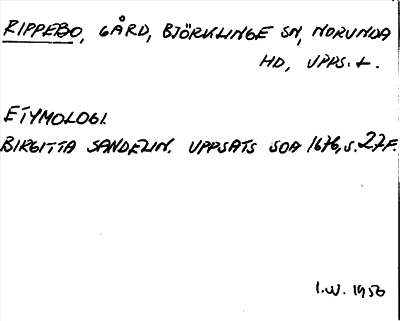 RIPPEBO, GÅRD, BJÖRKLINGE SN, NORUNDA
HD, UPPS. L.
ETYMOLOGI.
BIRGITTA SANDELIN. UPPSATS SOA 1676, S. 27 F.
I.W. 1956